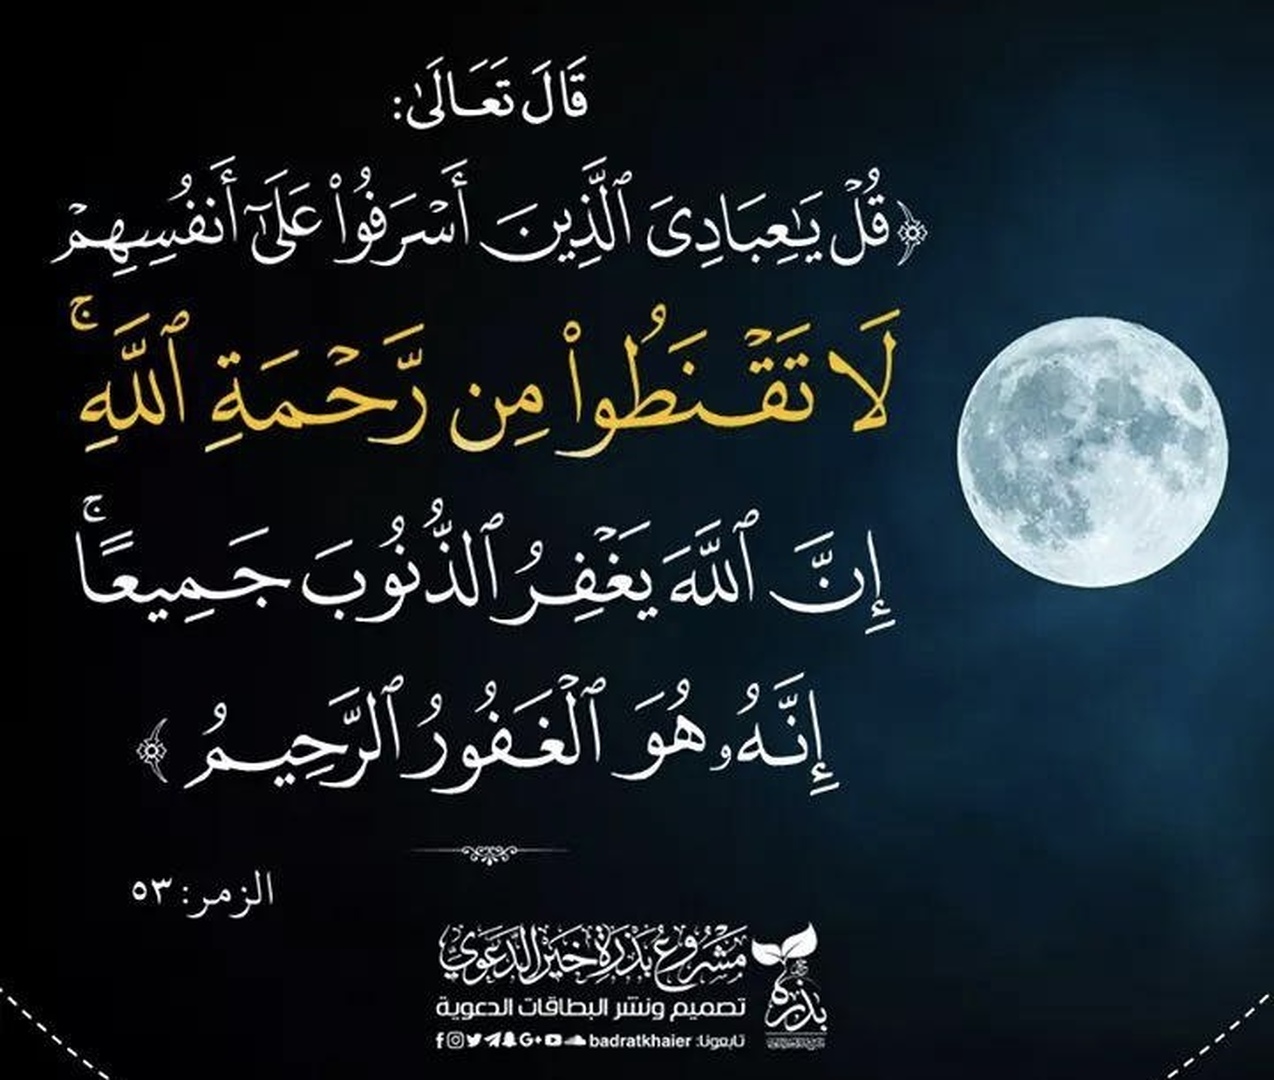 قَالَ تَعَالَىٰ:
﴿قُلْ يَٰعِبَادِىَ ٱلَّذِينَ أَسْرَفُوا۟ عَلَىٰٓ أَنفُسِهِمْ
لَا تَقْنَطُوا۟ مِن رَّحْمَةِ ٱللَّهِ ۚ
إِنَّ ٱللَّهَ يَغْفِرُ ٱلذُّنُوبَ جَمِيعًا ۚ
إِنَّهُۥ هُوَ ٱلْغَفُورُ ٱلرَّحِيمُ ﴾
الزمر: ٥٣
مَشْرُوعُ بَذْرَةُ خَيْرٍ الدَّعَوِيّ
بذرة
تصميم ونشر البطاقات الدعوية
تابعونا: badratkhaier